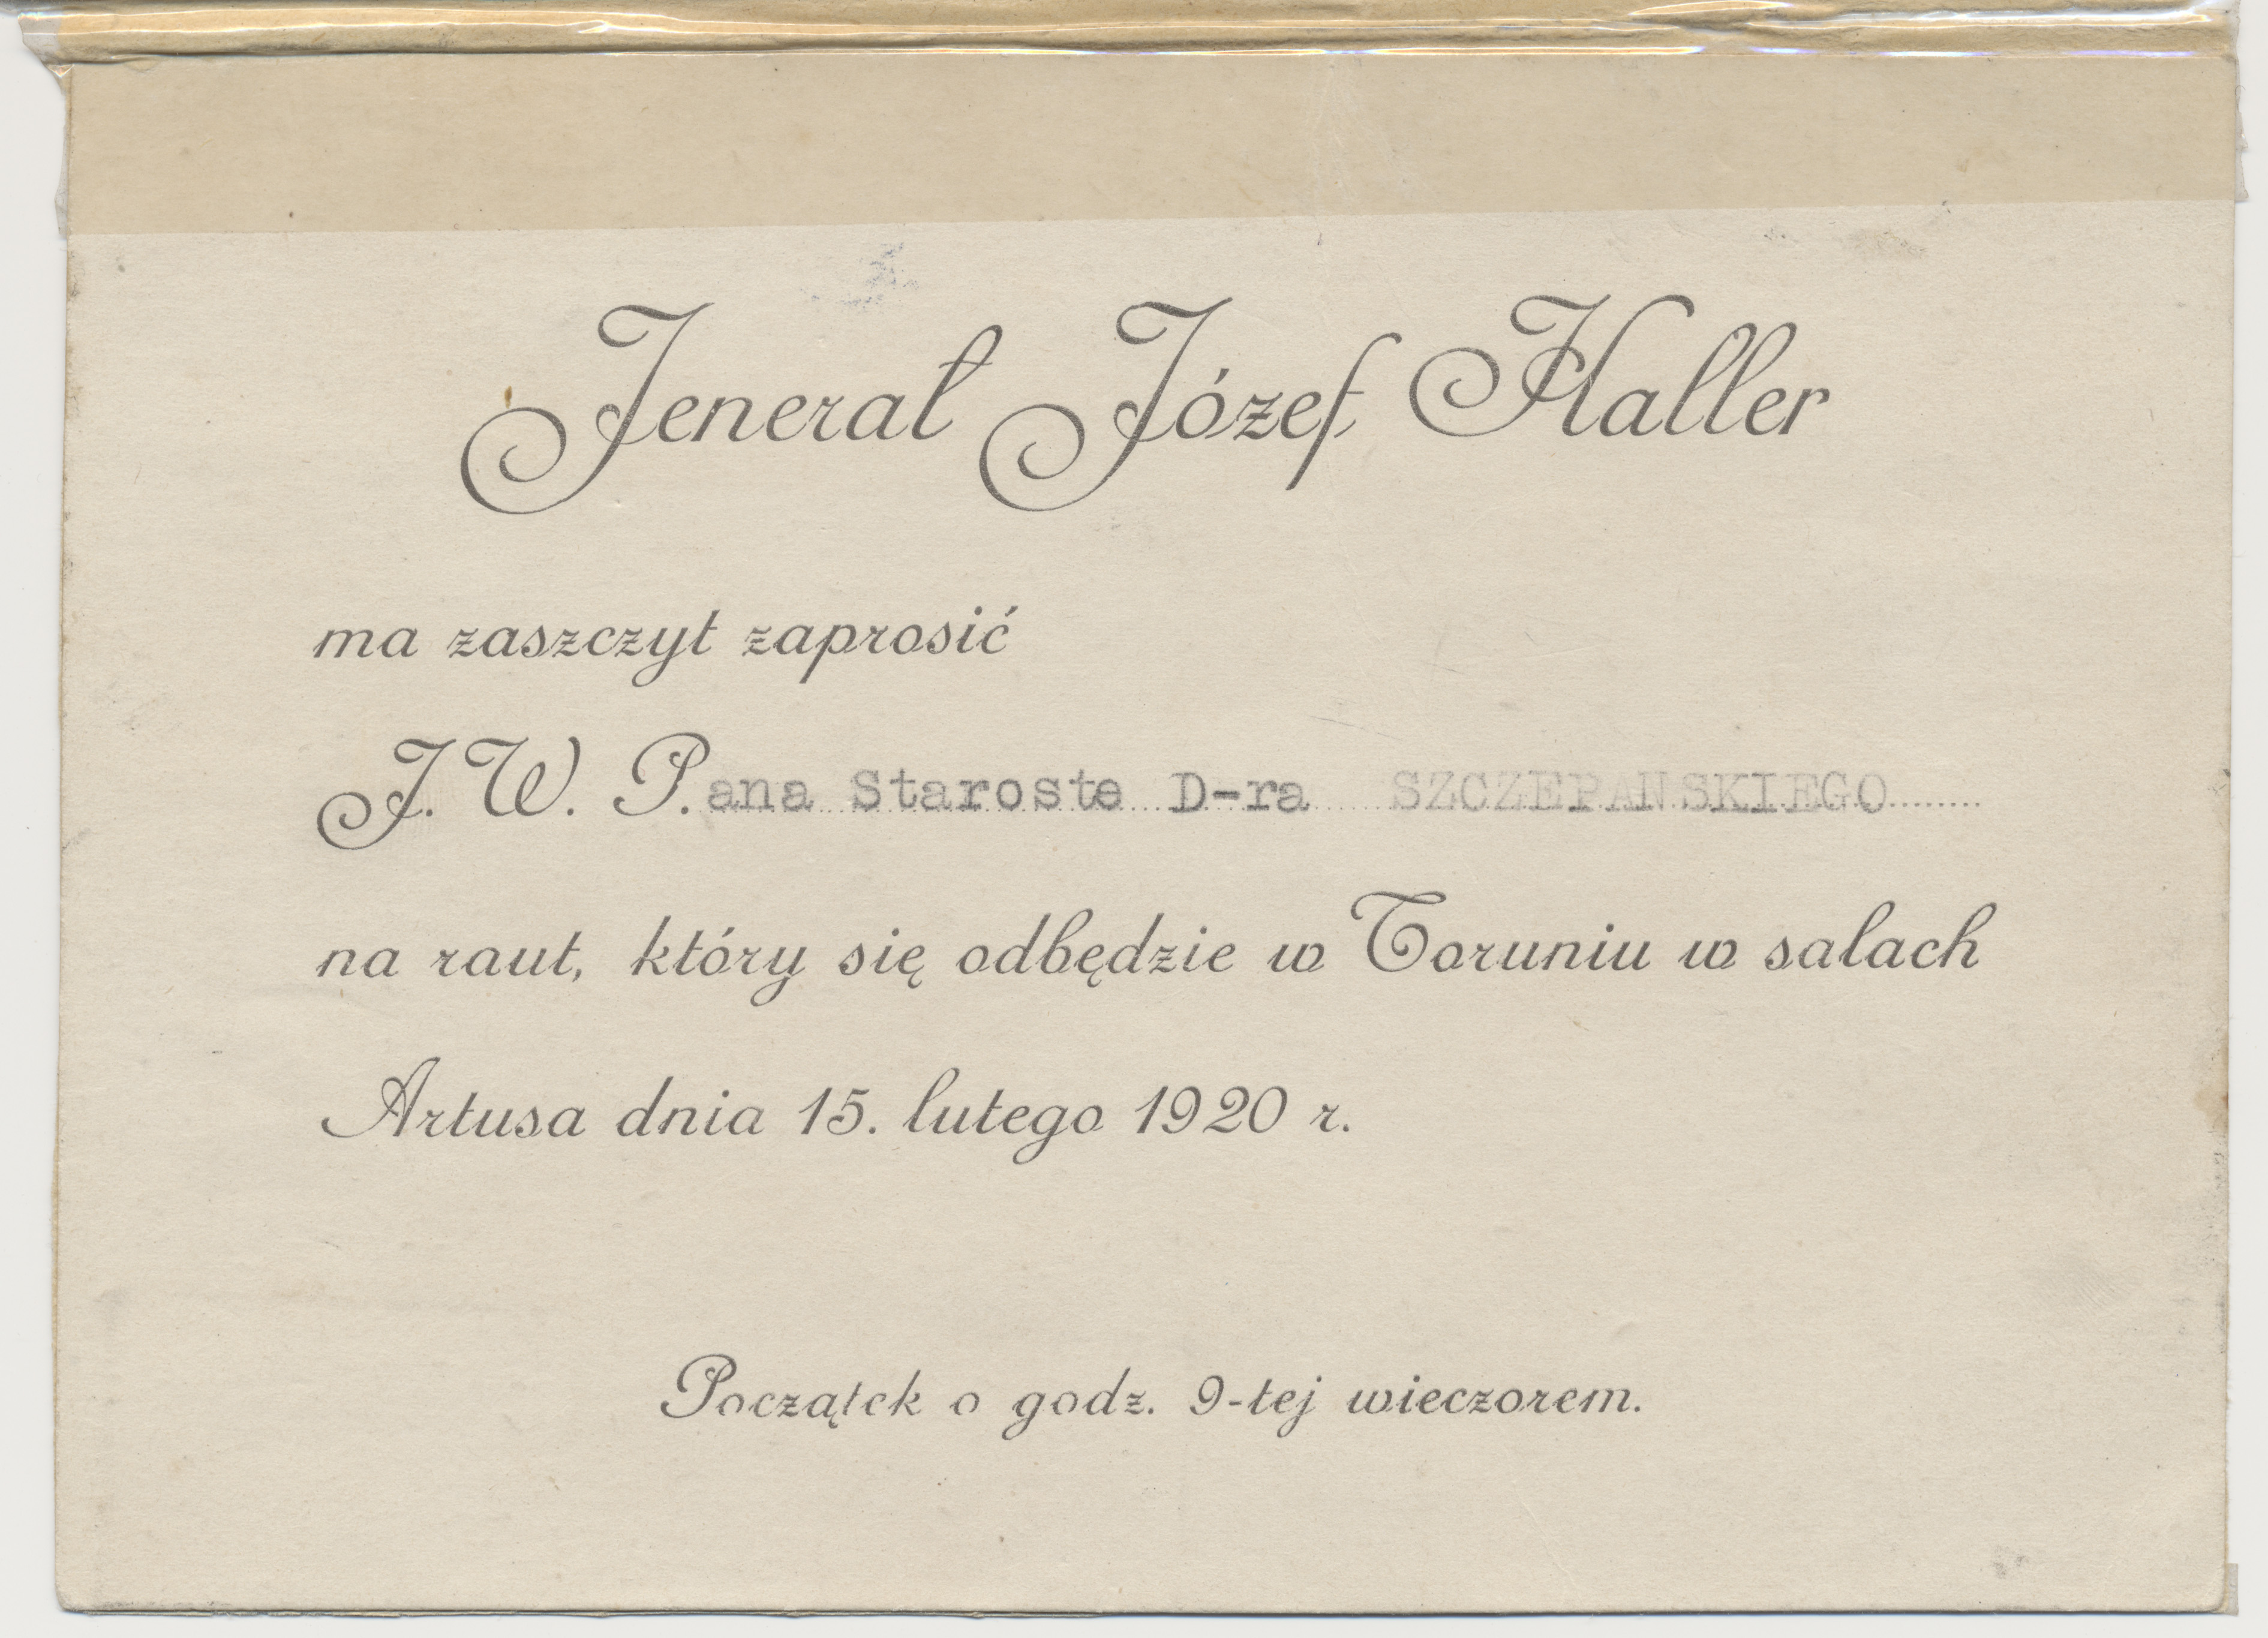 Jenerał Józef Haller
ma zaszczyt zaprosić
J. W. P.ana Staroste D-ra SZCZEPANSKIEGO
na raut, który się odbędzie w Toruniu w salach
Artusa dnia 15. lutego 1920 r.
Początek o godz. 9-tej wieczorem.